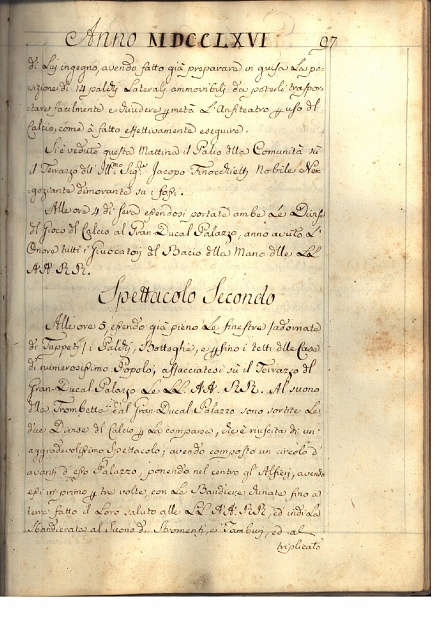 Anno MDCCLXVI 97
di Lui ingegno, avendo fatto già preparare in guisa la po-
sizione di 14 palchi Laterali ammovibili da potersi traspor-
tare facilmente e dividere p metà L'Anfiteatro p uso del
Calcio, come à fatto effettivamente eseguire.
Si è veduto questa Mattina il Palio dlla Comunità su
il Terrazzo dell' Ill.mo Sig.re Jacopo Finocchietti Nobile Ne-
goziante dimorante su i
Alle ore 4 di sera essendosi portate ambe Le Divise
dl Gioco dl Calcio al Gran Ducal Palazzo, anno avuto L'
Onore tutti i Giuocatori dl Bacio dlla Mano dlle LL.
AA. RR.
Spettacolo Secondo
Alle ore 5 essendo già pieno Le finestre (adornate
di Tappeti) i Palchi, Botteghe, e p fino i tetti dlle Case
di numerosissimo Popolo, affacciatesi su il Terrazzo dl
Gran Ducal Palazzo Le LL. AA. RR. Al suono
dlla Trombetta dal Gran Ducal Palazzo sono sortite Le
due Divise dl Calcio p La comparsa, che è riuscita di un'
aggradevolissimo Spettacolo; avendo composto un circolo d'
avanti d' esso Palazzo, ponendo nel centro gl' Alfieri, avendo
essi in primo p tre volte con La Bandiera fino a
terra fatto il Loro saluto alle LL. AA. RR, ed indi La
Sbandierata al Suono di Stromenti, e Tamburi, ed al
triplicato